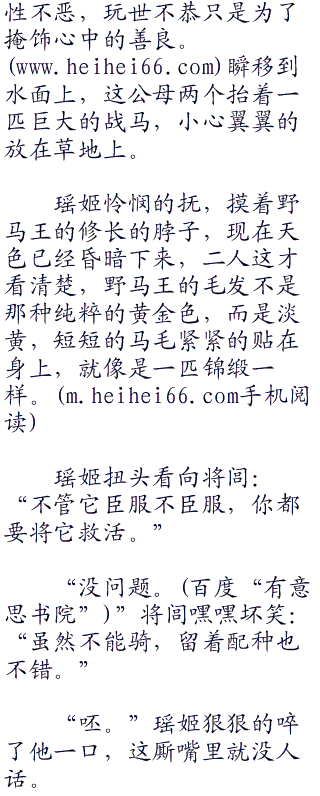 性不恶，玩世不恭只是为了
掩饰心中的善良。
(www.heihei66.com)瞬移到
水面上，这公母两个抬着一
匹巨大的战马，小心翼翼的
放在草地上。
瑶姬怜悯的抚，摸着野
马王的修长的脖子，现在天
色已经昏暗下来，二人这才
看清楚，野马王的毛发不是
那种纯粹的黄金色，而是淡
黄，短短的马毛紧紧的贴在
身上，就像是一匹锦缎一
样。(m.heihei66.com手机阅
读)
瑶姬扭头看向将闾：
“不管它臣服不臣服，你都
要将它救活。”
“没问题。(百度“有意
思书院”)”将闾嘿嘿坏笑：
“虽然不能骑，留着配种也
不错。”
“呸。”瑶姬狠狠的啐
了他一口，这厮嘴里就没人
话。